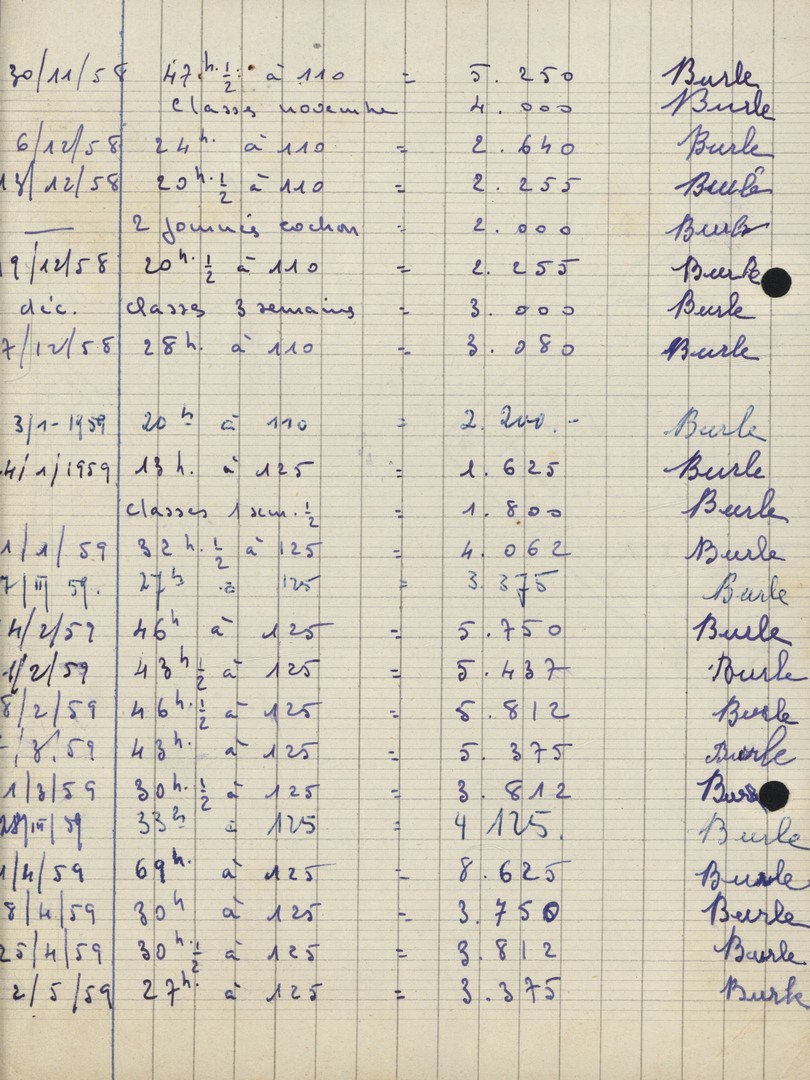 30/11/58 47 h. ½ à 110 = 5.250 Burle
Classes novembre 4.000 Burle
6/12/58 24 h. à 110 = 2.640 Burle
13/12/58 20 h. ½ à 110 = 2.255 Burle
— 2 journées cochon = 2.000 Burle
9/12/58 20 h. ½ à 110 = 2.255 Burle
déc. classes 3 semaines = 3.000 Burle
7/12/58 28 h. à 110 = 3.080 Burle
3/1-1959 20 h à 110 = 2.200.- Burle
4/1/1959 13 h. à 125 = 1.625 Burle
classes 1 sem. ½ = 1.800 Burle
1/1/59 32 h. ½ à 125 = 4.062 Burle
7/III 59. 27 h à 125 = 3.375 Burle
4/2/59 46 h à 125 = 5.750 Burle
1/2/59 43 h ½ à 125 = 5.437 Burle
8/2/59 46 h. ½ à 125 = 5.812 Burle
/3/59 43 h. à 125 = 5.375 Burle
1/3/59 30 h. ½ à 125 = 3.812 Burle
28/III/59 33 h à 125 = 4 125. Burle
1/4/59 69 h. à 125 = 8.625 Burle
8/4/59 30 h à 125 = 3.750 Burle
25/4/59 30 h. ½ à 125 = 3.812 Burle
2/5/59 27 h. à 125 = 3.375 Burle